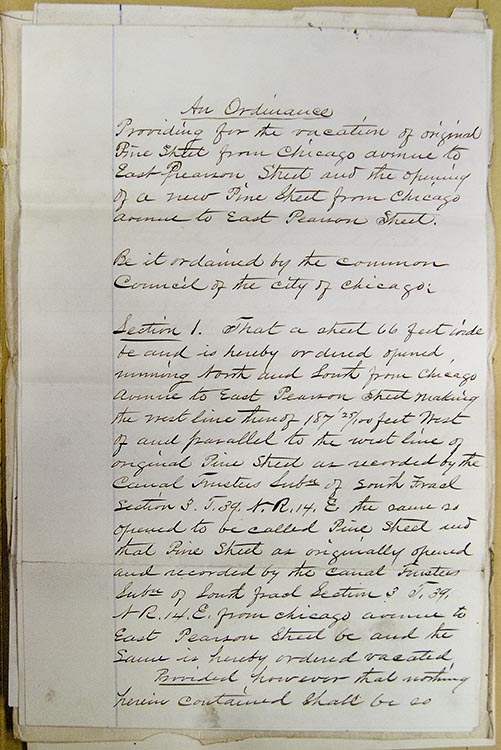 An Ordinance
Providing for the vacation of original
Pine Street from Chicago avenue to
East Pearson Street and the opening
of a new Pine Street from Chicago
avenue to East Pearson Street.
Be it ordained by the common
Council of the city of Chicago:
Section 1. That a street 66 feet wide
be and is hereby ordered opened,
running North and South from Chicago
Avenue to East Pearson Street making
the west line thereof 187 25/100 feet West
of and parallel to the west line of
original Pine Street as recorded by the
Canal Trustees Subn of South Fracl
Section 3. T. 39. N. R. 14. E the same so
opened to be called Pine Street and
that Pine Street as originally opened
and recorded by the Canal Trustees
Subn of South fracl Section 3 T. 39.
N R. 14. E. from Chicago avenue to
East Pearson Street be and the
Same is hereby ordered vacated
Provided however that nothing
herein contained Shall be so